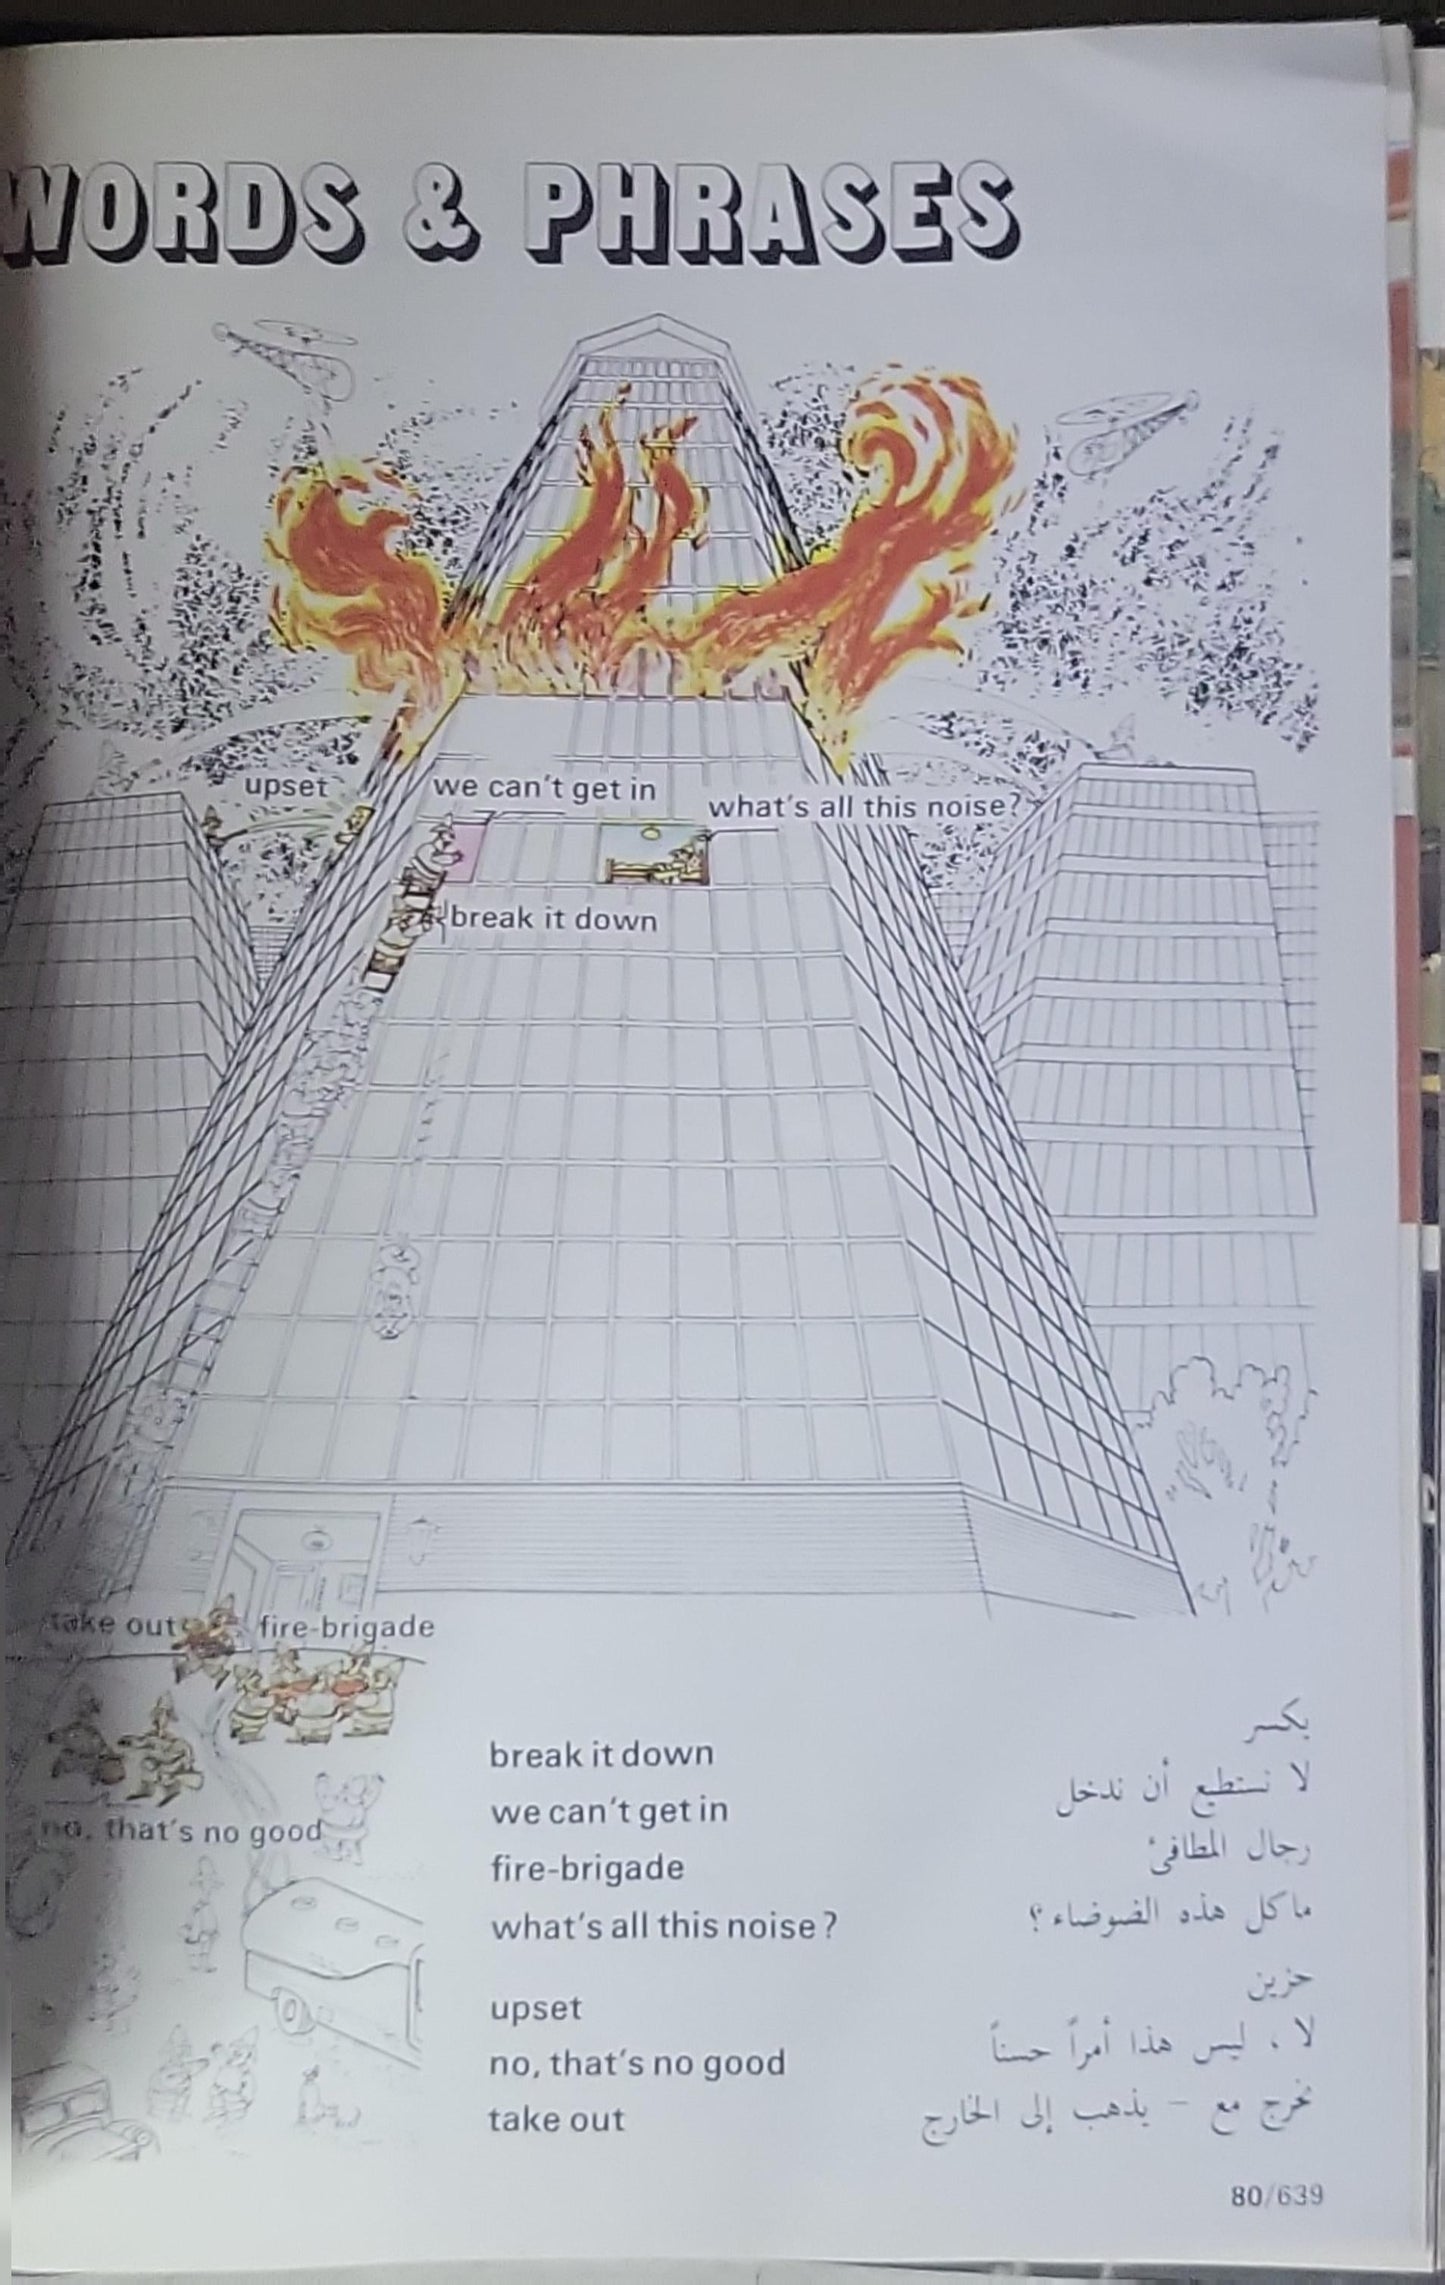 WORDS & PHRASES
upset
we can't get in
what's all this noise?
break it down
take out
fire-brigade
no, that's no good
break it down
يكسر
we can't get in
لا نستطيع أن ندخل
fire-brigade
رجال المطافئ
what's all this noise?
ما كل هذه الضوضاء؟
upset
حزين
no, that's no good
لا ، ليس هذا أمراً حسناً
take out
نخرج مع – يذهب إلى الخارج
80/639